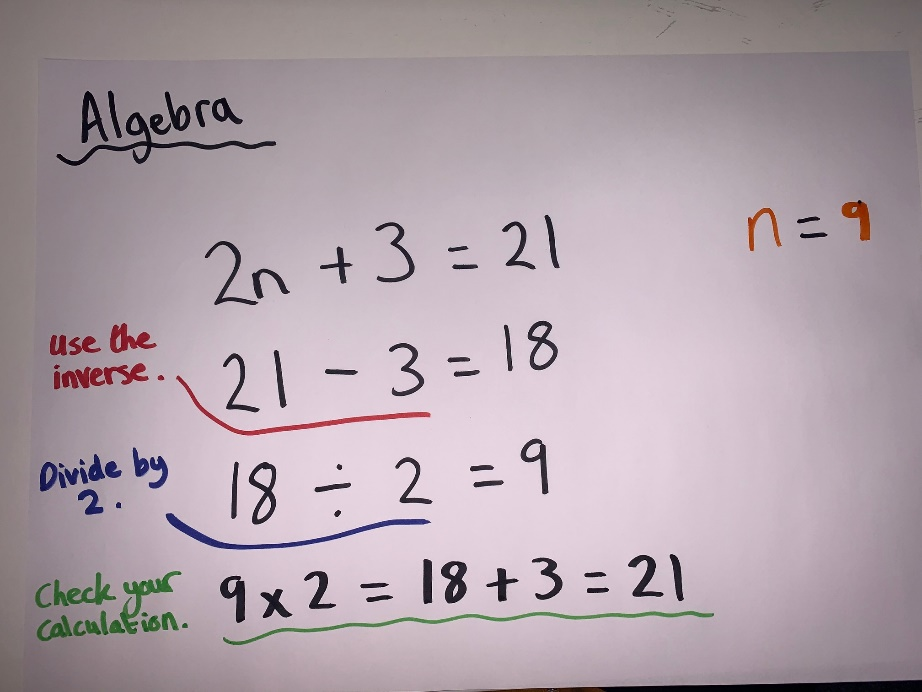 Algebra
2n + 3 = 21
n = 9
Use the
inverse.
21 - 3 = 18
Divide by
2.
18 ÷ 2 = 9
Check your
calculation.
9 x 2 = 18 + 3 = 21